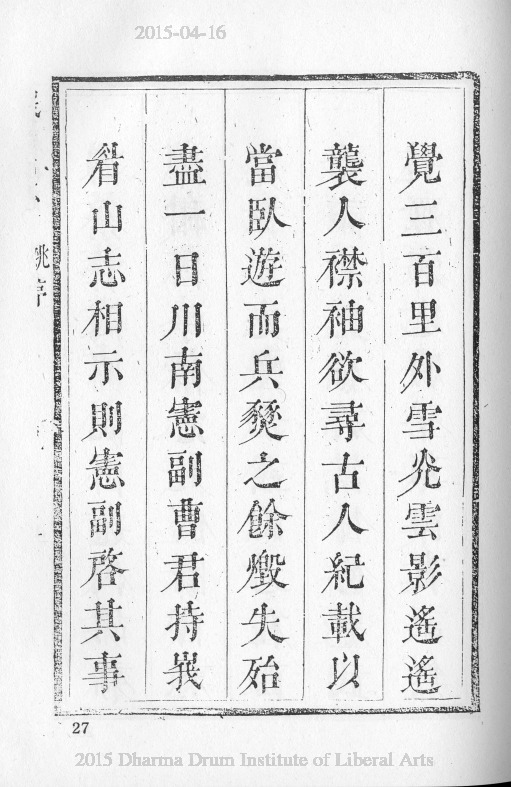 2015-04-16
覺三百里外雪光雲影遙遙
襲人襟袖欲尋古人紀載以
當臥遊而兵燹之餘燬失殆
盡一日川南憲副曹君持峩
眉山志相示則憲副啓其事
序
27
2015 Dharma Drum Institute of Liberal Arts